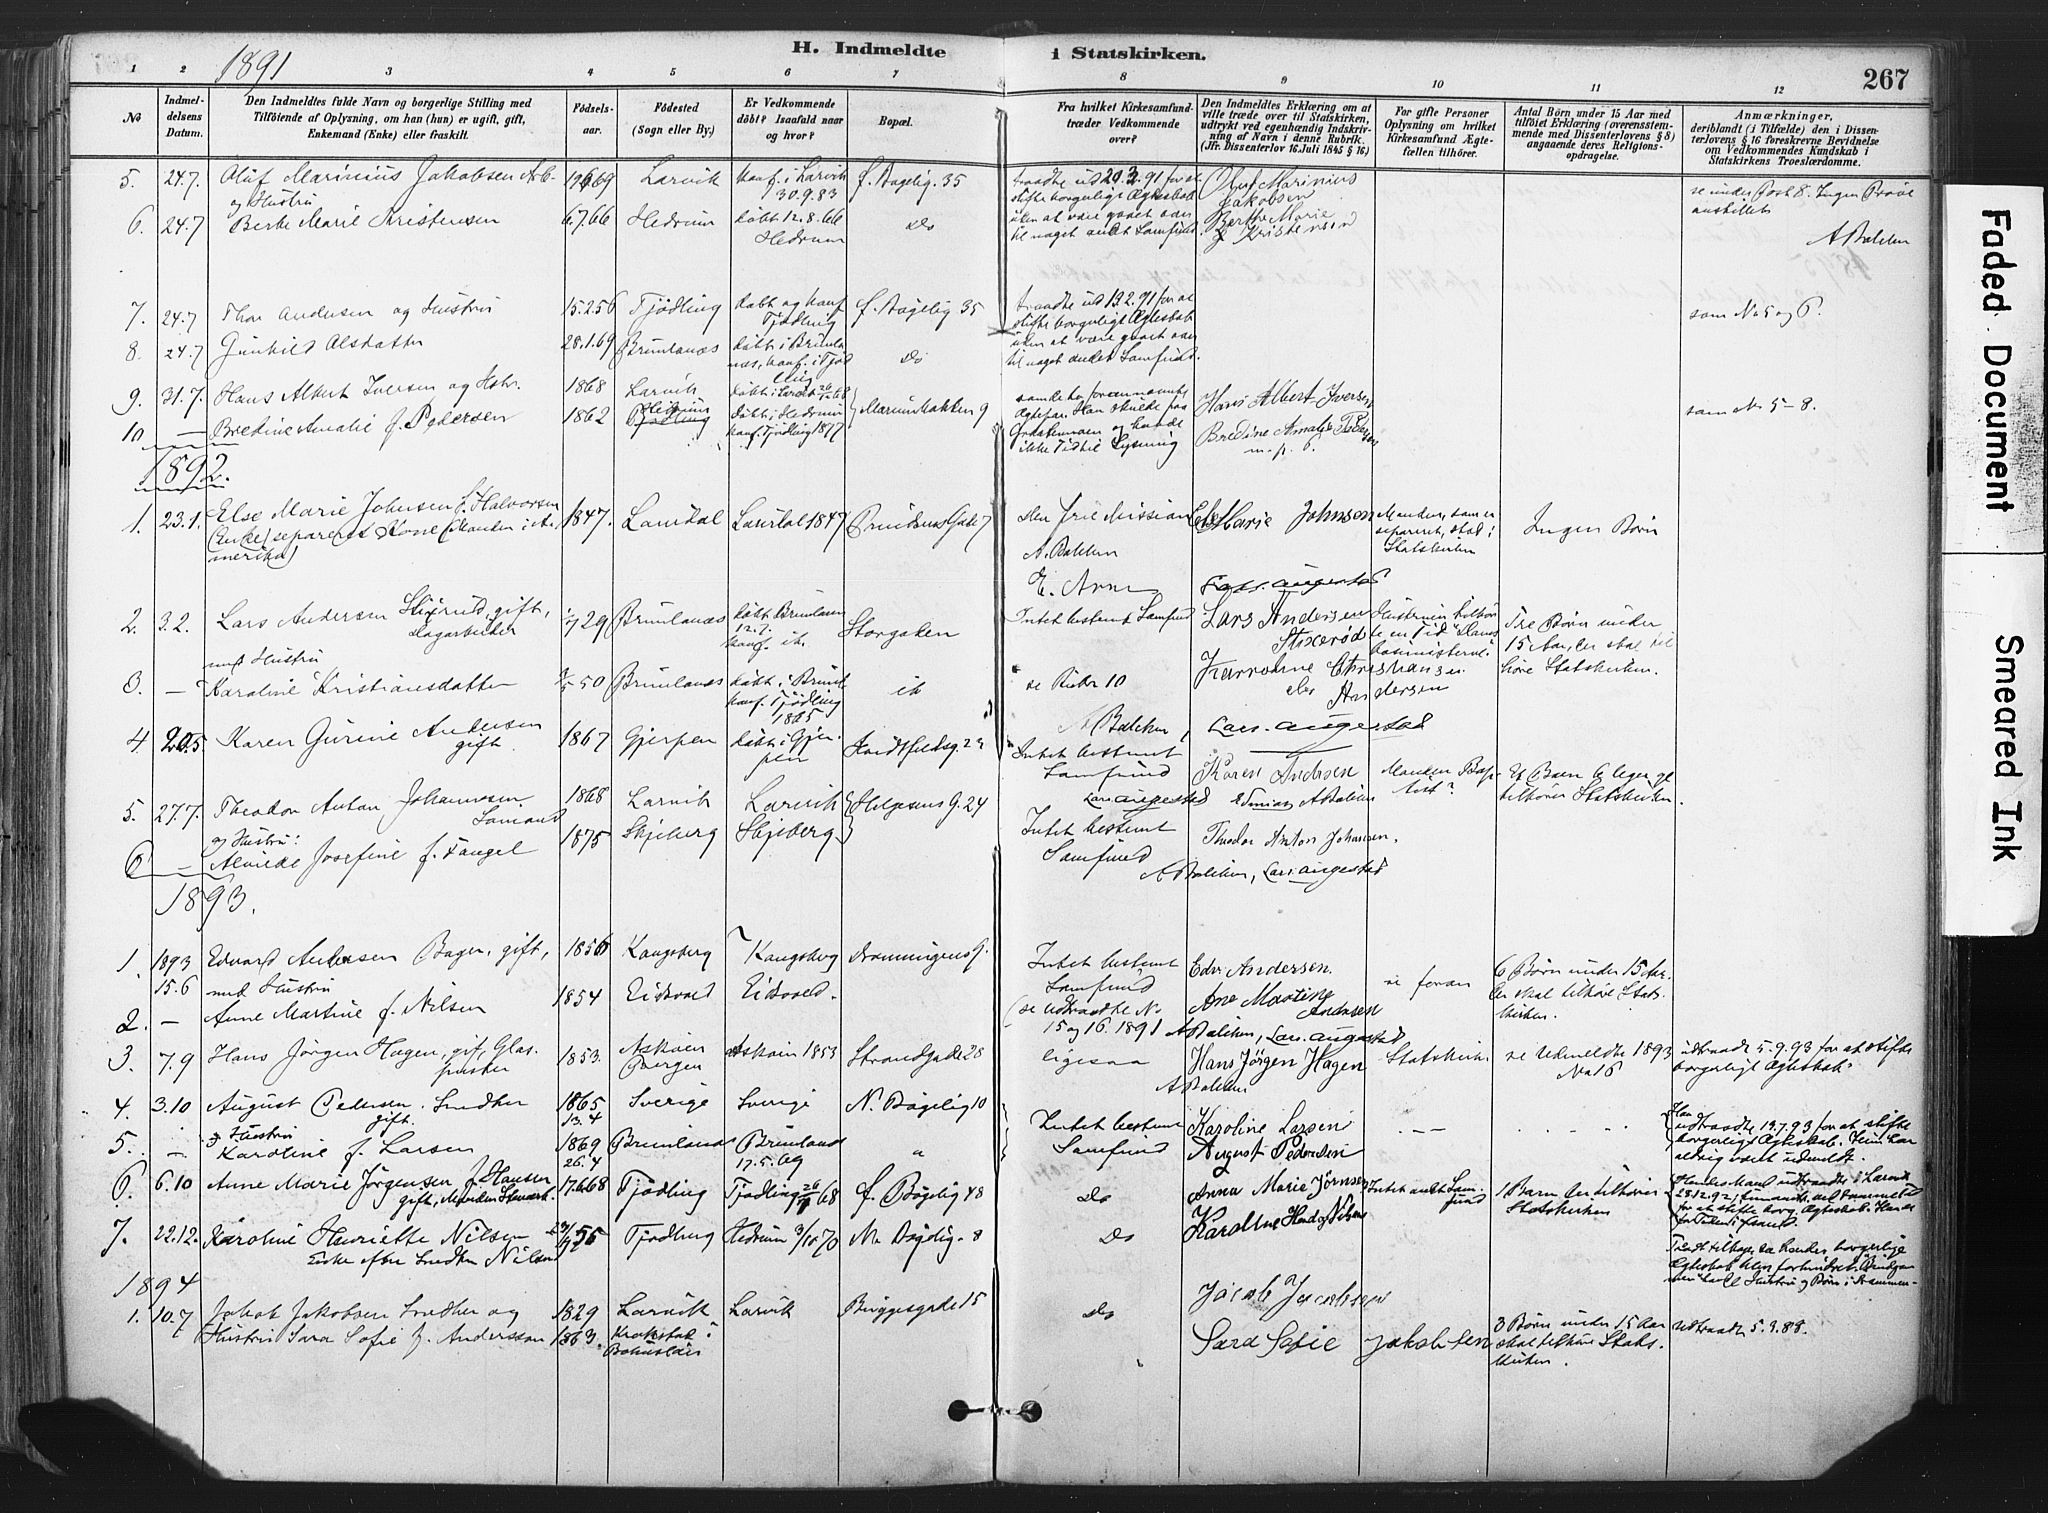 H. Indmeldte i Statskirken.
267
1891
1 2 3 4 5 6 7 8 9 10 11 12
No
Indmel-
delsens
Datum.
Den Indmeldtes fulde Navn og borgerlige Stilling med
Tilföiende af Oplysning, om han (hun) er ugift, gift,
Enkemand (Enke) eller fraskilt.
Födsels-
aar.
Födested
(Sogn eller By.)
Er Vedkommende
döbt? Isaafald naar
og hvor?
Bopæl.
Fra hvilket Kirkesamfund
træder Vedkommende
over?
Den Indmeldtes Erklæring om at
ville træde over til Statskirken,
udtrykt ved egenhændig Indskriv-
ning af Navn i denne Rubrik.
(Jfr. Dissenterlov 16. Juli 1845 § 16)
For gifte Personer
Oplysning om hvilket
Kirkesamfund Ægte-
fællen tilhörer.
Antal Börn under 15 Aar med
tilföiet Erklæring (overensstem-
mende med Dissenterlovens § 8)
angaaende deres Religions-
opdragelse.
Anmærkninger,
deriblandt (i Tilfælde) den i Dissen-
terlovens § 16 foreskrevne Bevidnelse
om Vedkommendes Kundskab i
Statskirkens Troeslærdomme.
5. 24.7. Oluf Marinius Jakobsen
og Hustru
19669 Larvik konf. i Larvik
30.9.83 f. Bøgelig. 35
traadte ud 20.3.91 for at
stifte borgerligt Ægteskab
uden at være gaaet over
til noget andet Samfund.
Oluf Marinius
Jakobsen
se under Post 8. Ingen Prøve
anstillet
6. 24.7 Berte Marie Kristensen 6.7.66 Hedrum døbt 12.8.66
Hedrum Do
Berthe Marie
Kristensen
A Balchen
7. 24.7 Thor Andersen og Hustru 15.2.56 Tjødling døbt og konf
Tjødling f. Bøgelig 35
traadte ud 13.2.91 for at
stifte borgerligt Ægteskab
uden at være gaaet over
til noget andet Samfund.
som No 5 og 6.
8. 24.7 Gunhild Olsdatter 28.1.69 Brunlanæs døbt i Brunla-
næs, konf. i Tjød
ling Do
9. 31.7. Hans Albert Iversen og Hstr. 1868 Larvik døbt i Larvik
Marienbakken 9
Hans Albert Iversen
som No 5-8.
10 — Bredine Amalie f. Pedersen 1862 Hedrum
Tjødling
døbt i Hedrum
konf. Tjødling 1877
ikke Tid til Lysning
Bredine Amalie Pedersen
m. p. 6.
1892.
1. 23.1. Else Marie Johnsen f. Halvorsen
(Enke) separeret Kone (Manden i A-
merika)
1847. Laurdal Laurdal 1847
den frie Mission
A. Balchen
Else Marie Johnsen
Manden, som er
separeret, stod i
Statskirken
Ingen Børn
2. 3.2. Lars Andersen Stixrud, gift,
Dagarbeider
med Hustru
29 Brunlanæs døbt Brunlan
12.7.
konf. ib.
Storgaden
Intet bestemt Samfund
Lars. Augestad
Lars Andersen
Stixerød
Tre Børn under
15 Aar, der skal til
høre Statskirken.
3. — Karoline Kristiansdatter 50 Brunlanæs døbt i Brunl
konf. Tjødling
1865
ib
se Rubr 10
Karroline Christiansen
eler Andersen
A Balchen, Lars. Augestad
4. 20.5. Karen Gurine Andersen
gift
1867 Gjerpen døbt i Gjer-
pen
Intet bestemt
Samfund
Lars Augestad
Karen Andersen
A Balchen
Manden Bap-
tist?
tilhører Statskirken.
5. 27.7. Theodor Anton Johannesen
Sømand
og Hustru:
1868 Larvik Larvik Helgesens G. 24
Intet bestemt
Samfund
Theodor Anton Johansen.
6 — Alvilde Josefine f. Tangel 1875 Skjeberg Skjeberg
A Balchen, Lars Augestad
1893.
1. 1893
15.6
Edvard Andersen Bagen, gift,
med Hustru
1856 Kongsberg Kongsberg Dronningensg.
Intet bestemt
Samfund
(se Udtraadte No
15 og 16. 1891
Edv. Andersen.
se foran
6 Børn under 15 Aar.
der skal tilhøre Stats-
kirken.
2. — Anne Martine f. Nilsen 1854 Eidsvold Eidsvold.
Ane Martine
Andersen
A Balchen, Lars. Augestad
3. 7.9 Hans Jörgen Hagen, gift, Glas-
puster
1853. Askøien
Bergen
Askøien 1853 Strandgade 28
ligesaa
A Balchen
Hans Jörgen Hagen
Statskirken
se Udmeldte 1893
No 16
udtraadt 5.9.93 for at stifte
borgerligt Ægteskab.
4. 3.10 August Pedersen. Snedker
gift.
og Hustru
1865
13.4
Sverige Sverige N. Bøgelig 10
Intet bestemt
Samfund
Karoline Larsen
August Pedersen
Han
udtraadte 19.7.93 for at stifte
borgerligt Ægteskab. Hun har
aldrig været udmeldt.
5. — Karoline f. Larsen 1869
26.4
Brunlanæs Brunlanæs
17.5.69
"
6. 6.10 Anne Marie Jörgensen f. Hansen
gift, Manden
17.6.68 Tjødling Tjødling 68 f. Bøgelig 48
Do
Anna Marie Jörnsen
Intet andet Sam-
fund
1 Barn der tilhører
Statskirken
Hendes Mand udtraadte i Larvik
28.12.92
for at stifte borg. Ægteskab.
7. 22.12. Karoline Henriette Nilsen
Enke efter Snedker Nilsen
55 Tjødling Hedrum 3/10 70 N. Bøgelig. 8
Do
Karoline Hendr. Nilsen
Traadt tilbage, da hendes borgerlige
Ægteskab blev forhindret.
Hustru og Børn i Drammen.
1894
1. 10.7 Jakob Jakobsen Snedker og
Hustru Sara Sofie f. Anderson
1829
1863.
Larvik
Krokstad i
Bohuslän
Larvik Bryggegade 15
Do
"
Jacob Jacobsen
Sara Sofie Jakobsen
3 Børn under 15 Aar
skal tilhøre Stats-
kirken.
Udtraadt 5.9.88.
Faded Document
Smeared Ink